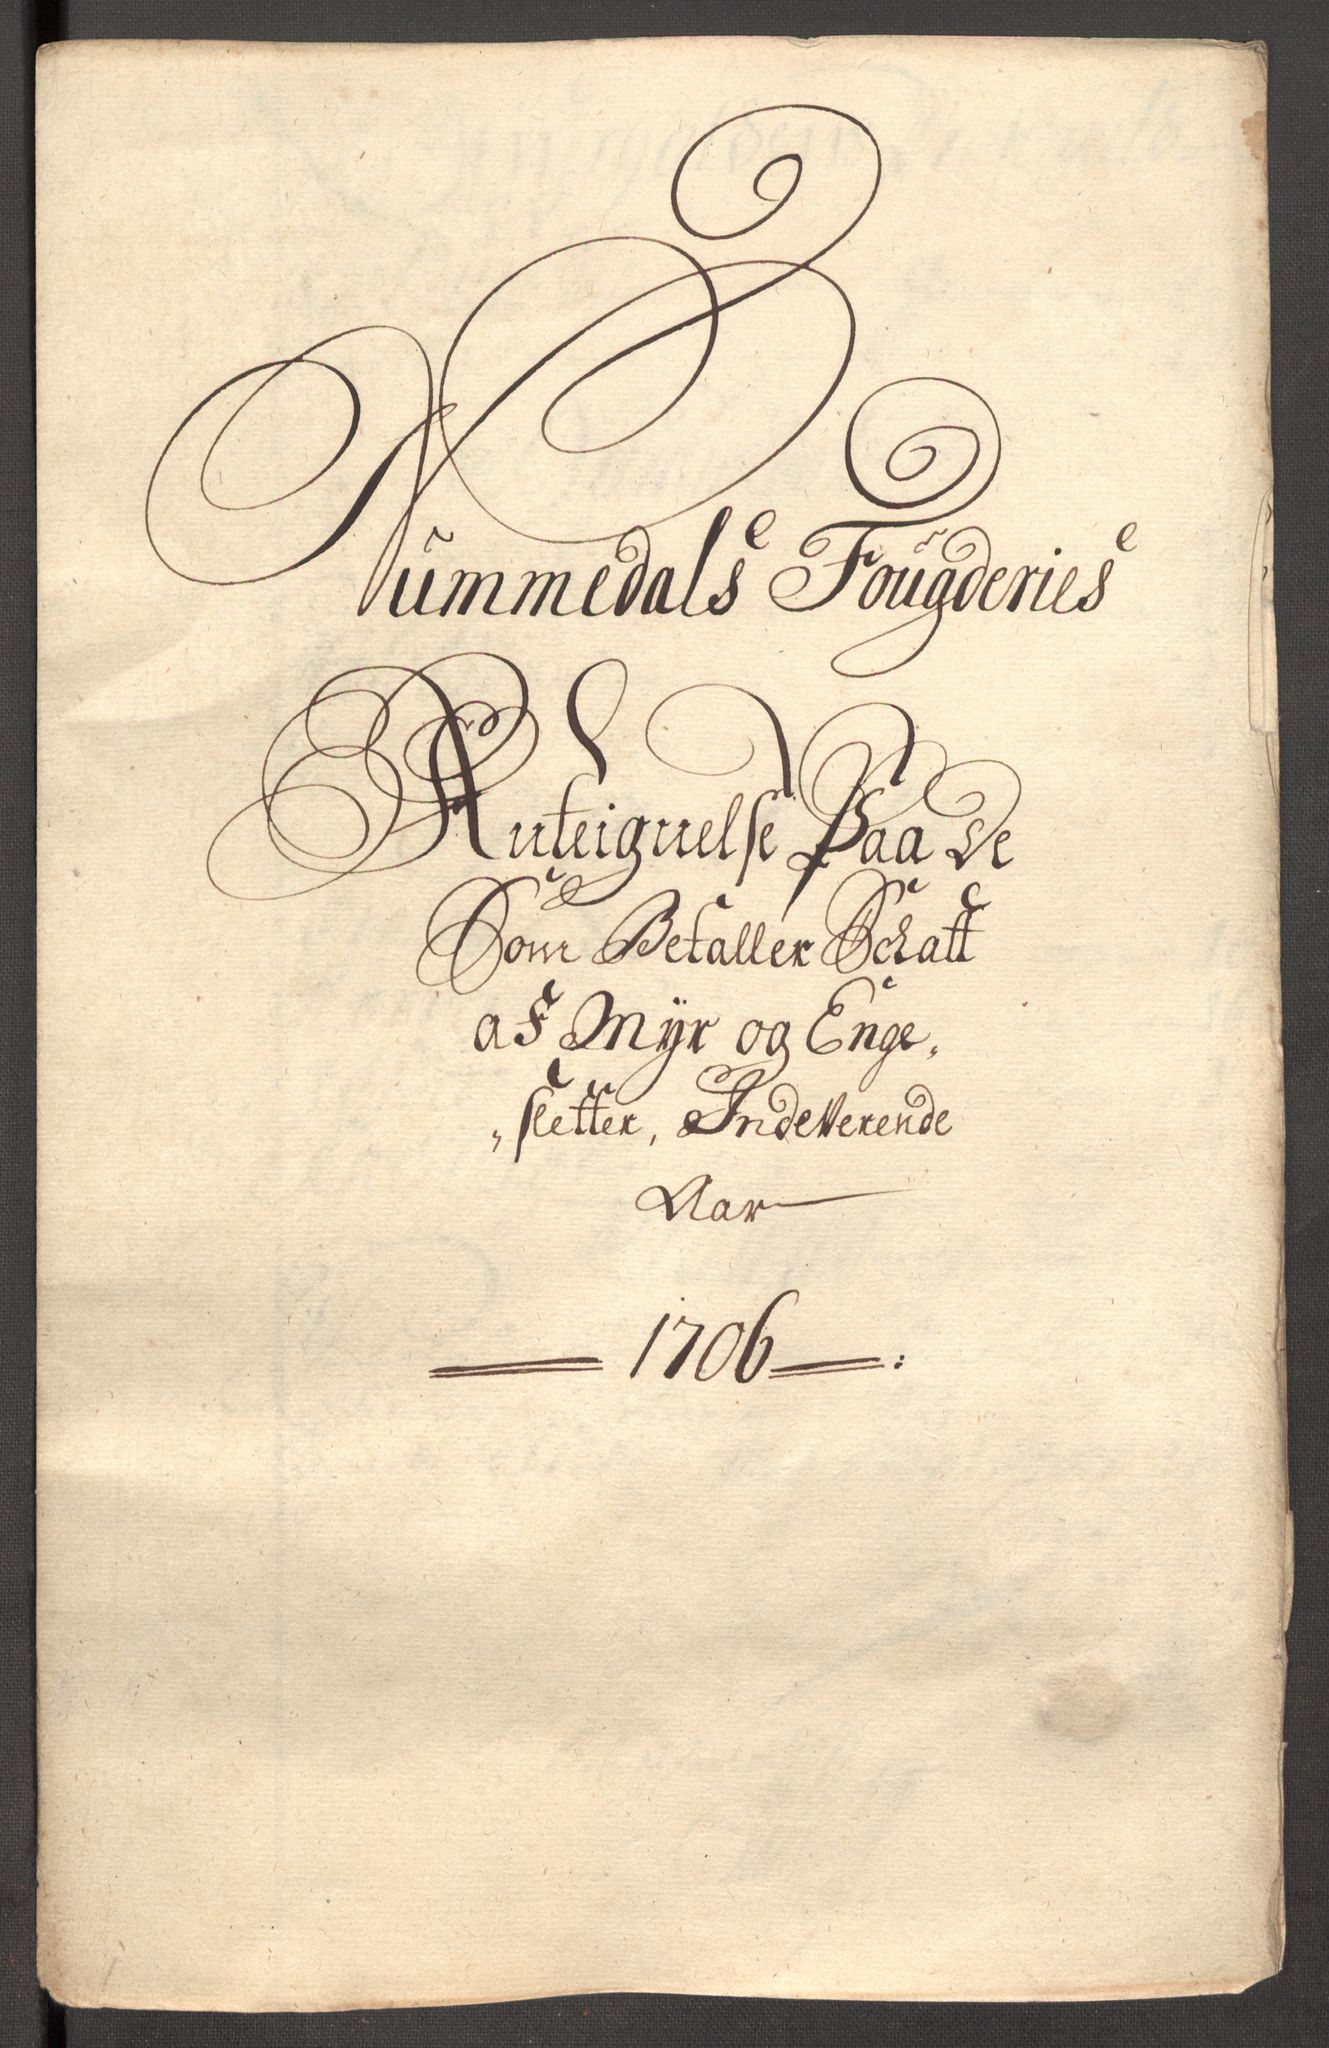 Nummedals Fougderies
Anteignelse Paa de
Som Betaller Schatt
af Myr og Enge„
„sletter, Indeverende
Aar
1706